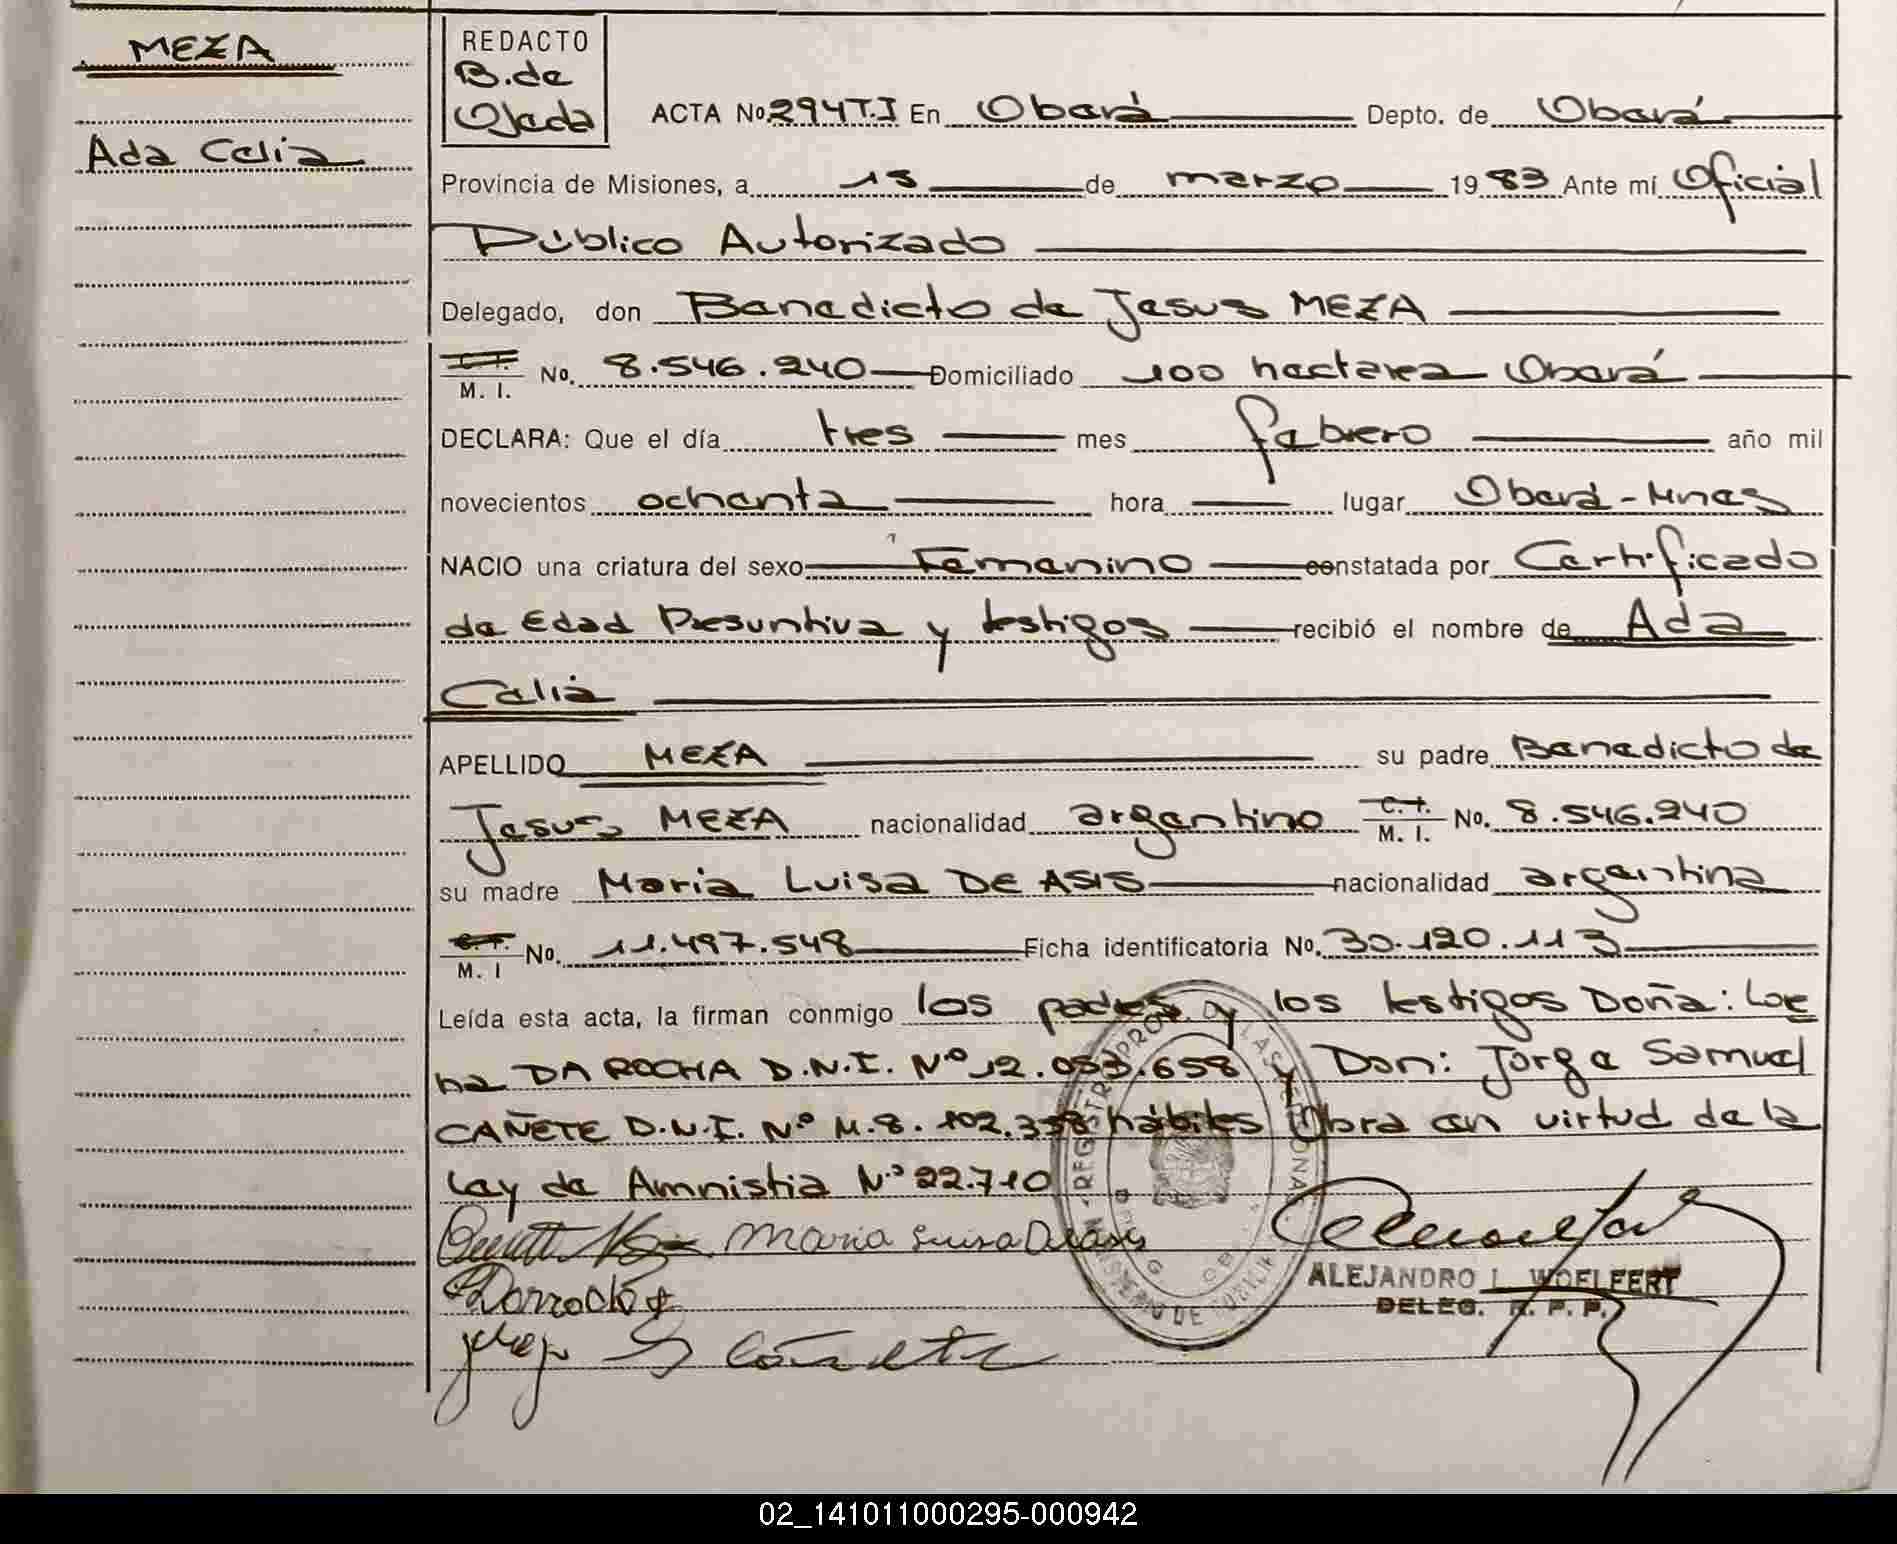 MEZA
Ada Celia
REDACTO
B. de
Ojeda
ACTA No. 294 T.I En Oberá Depto. de Oberá
Provincia de Misiones, a 15 de marzo 1983 Ante mí Oficial
Público Autorizado
Delegado, don Benedicto de Jesus MEZA
C. I. M. I. No. 8.546.240 Domiciliado 100 hectarea Oberá
DECLARA: Que el día tres mes febrero año mil
novecientos ochenta hora lugar Oberá - Mnes
NACIO una criatura del sexo Femenino constatada por Certificado
de Edad Presuntiva y testigos recibió el nombre de Ada
Celia
APELLIDO MEZA su padre Benedicto de
Jesus MEZA nacionalidad argentino C. I. M. I. No. 8.546.240
su madre Maria Luisa DE ASIS nacionalidad argentina
C. I. M. I No. 11.497.548 Ficha identificatoria No. 30.120.113
Leída esta acta, la firman conmigo los padres y los testigos Doña: Lore
na DA ROCHA D.N.I. Nº 12.053.658 y Don: Jorge Samuel
CAÑETE D.N.I. Nº M.8.102.358 hábiles Obra en virtud de la
Ley de Amnistia Nº 22.710
Maria Luisa De Asis
ALEJANDRO L. WOELFERT
DELEG. R. P. P.
REGISTRO PROV. DE LAS PERSONAS
02_141011000295-000942